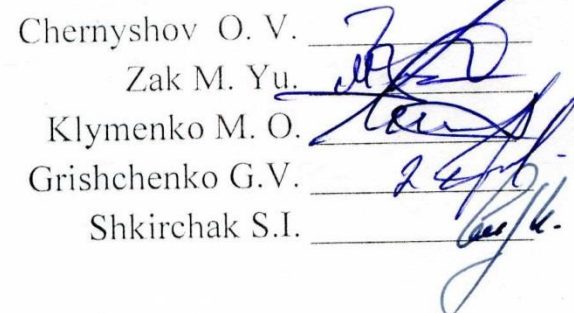 Chernyshov O. V.
Zak M. Yu.
Klymenko M. O.
Grishchenko G.V.
Shkirchak S.I.